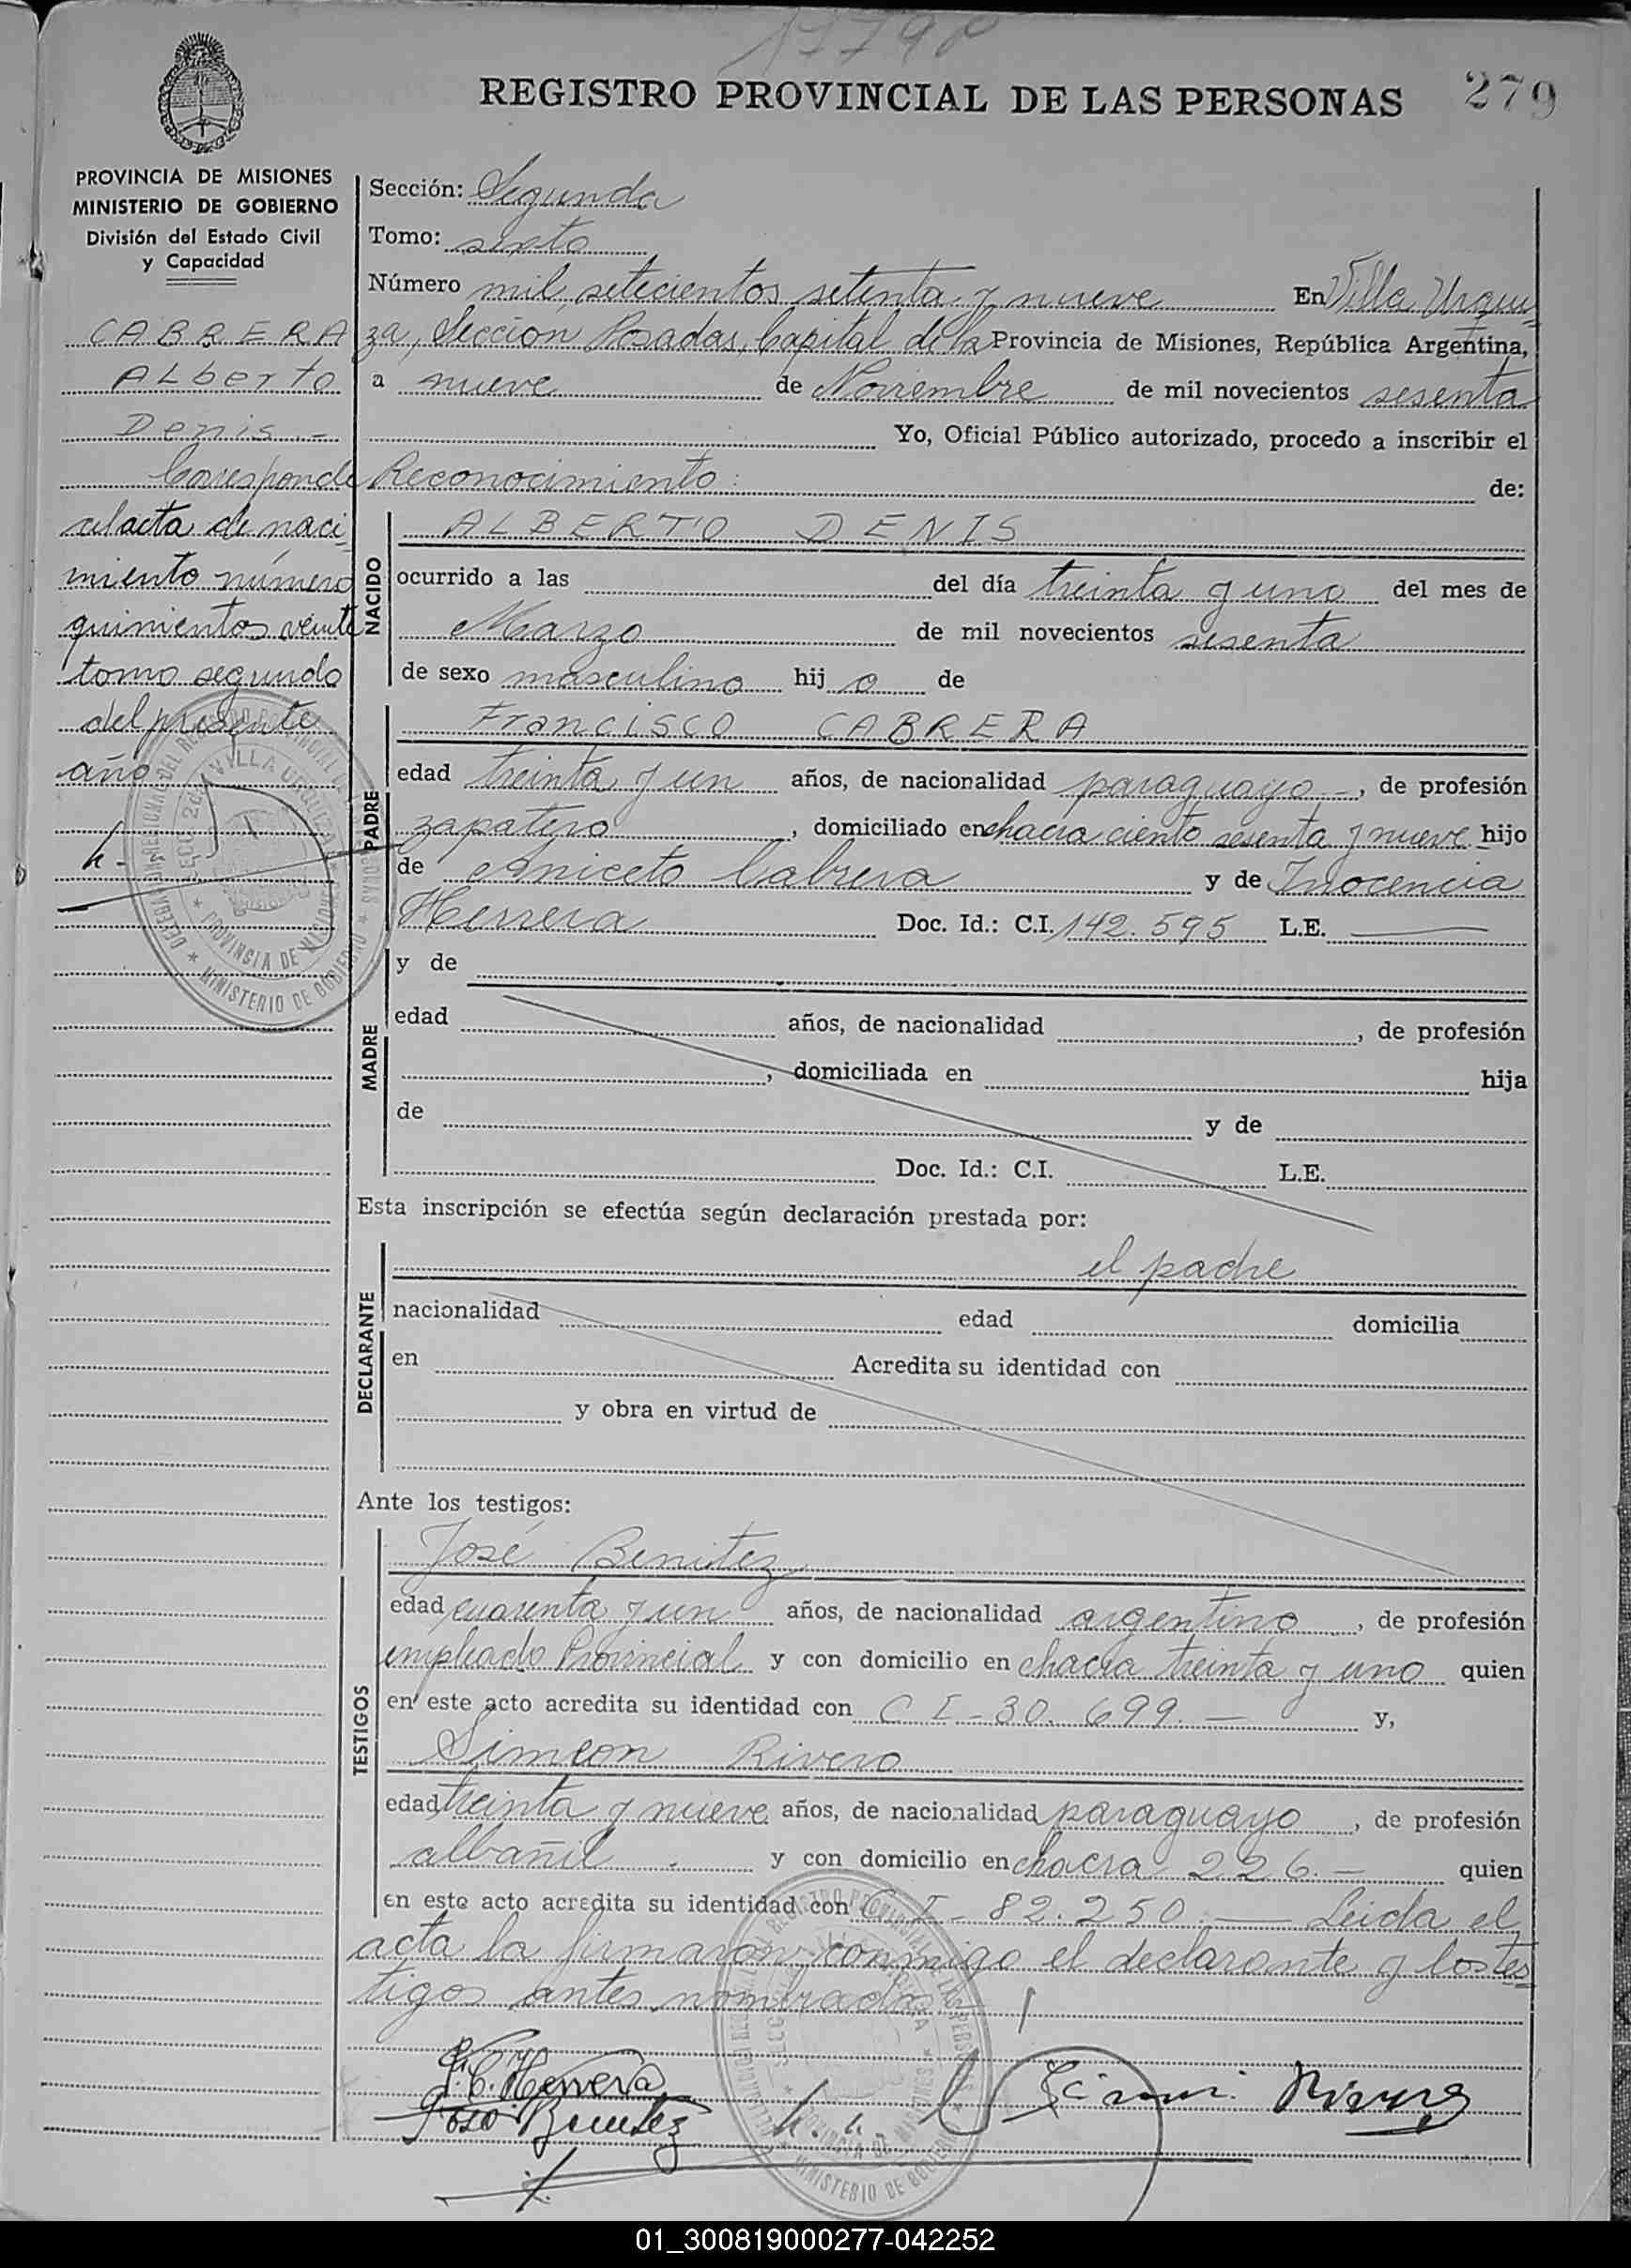 1779
REGISTRO PROVINCIAL DE LAS PERSONAS 279
PROVINCIA DE MISIONES
MINISTERIO DE GOBIERNO
División del Estado Civil
y Capacidad
CABRERA
Alberto
Denis.-
Corresponde
al acta de naci
miento número
quinientos veinte
tomo segundo
del presente
año
Sección: Segunda
Tomo: sexto
Número mil setecientos setenta y nueve En Villa Urqui-
za, Sección Posadas, Capital de la Provincia de Misiones, República Argentina,
a nueve de Noviembre de mil novecientos sesenta
Yo, Oficial Público autorizado, procedo a inscribir el
Reconocimiento: de:
NACIDO
ALBERTO DENIS
ocurrido a las del día treinta y uno del mes de
Marzo de mil novecientos sesenta
de sexo masculino hij o de
PADRE
Francisco CABRERA
edad treinta y un años, de nacionalidad paraguayo -, de profesión
zapatero, domiciliado en chacra ciento sesenta y nueve hijo
de Aniceto Cabrera y de Inocencia
Herrera Doc. Id.: C.I. 142.595 L.E. —
MADRE
y de
edad años, de nacionalidad , de profesión
, domiciliada en hija
de y de
Doc. Id.: C.I. L.E.
Esta inscripción se efectúa según declaración prestada por:
DECLARANTE
el padre
nacionalidad edad domicilia
en Acredita su identidad con
y obra en virtud de
Ante los testigos:
TESTIGOS
José Benitez
edad cuarenta y un años, de nacionalidad argentino, de profesión
empleado Provincial y con domicilio en chacra treinta y uno quien
en este acto acredita su identidad con C I - 30.699. — y,
Simeon Rivero
edad treinta y nueve años, de nacionalidad paraguayo, de profesión
albañil y con domicilio en chacra 226.- quien
en este acto acredita su identidad con C I - 82.250.— Leida el
acta la firmaron conmigo el declarante y los tes
tigos antes nombrados.-
Herrera
Jose Benitez
01_300819000277-042252